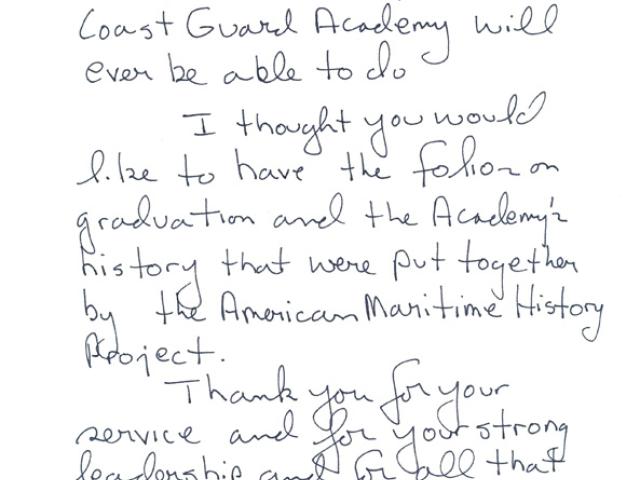 Coast Guard Academy will
ever be able to do
I thought you would
like to have the folios on
graduation and the Academy's
history that were put together
by the American Maritime History
Project.
Thank you for your
service and for your strong
leadership and for all that